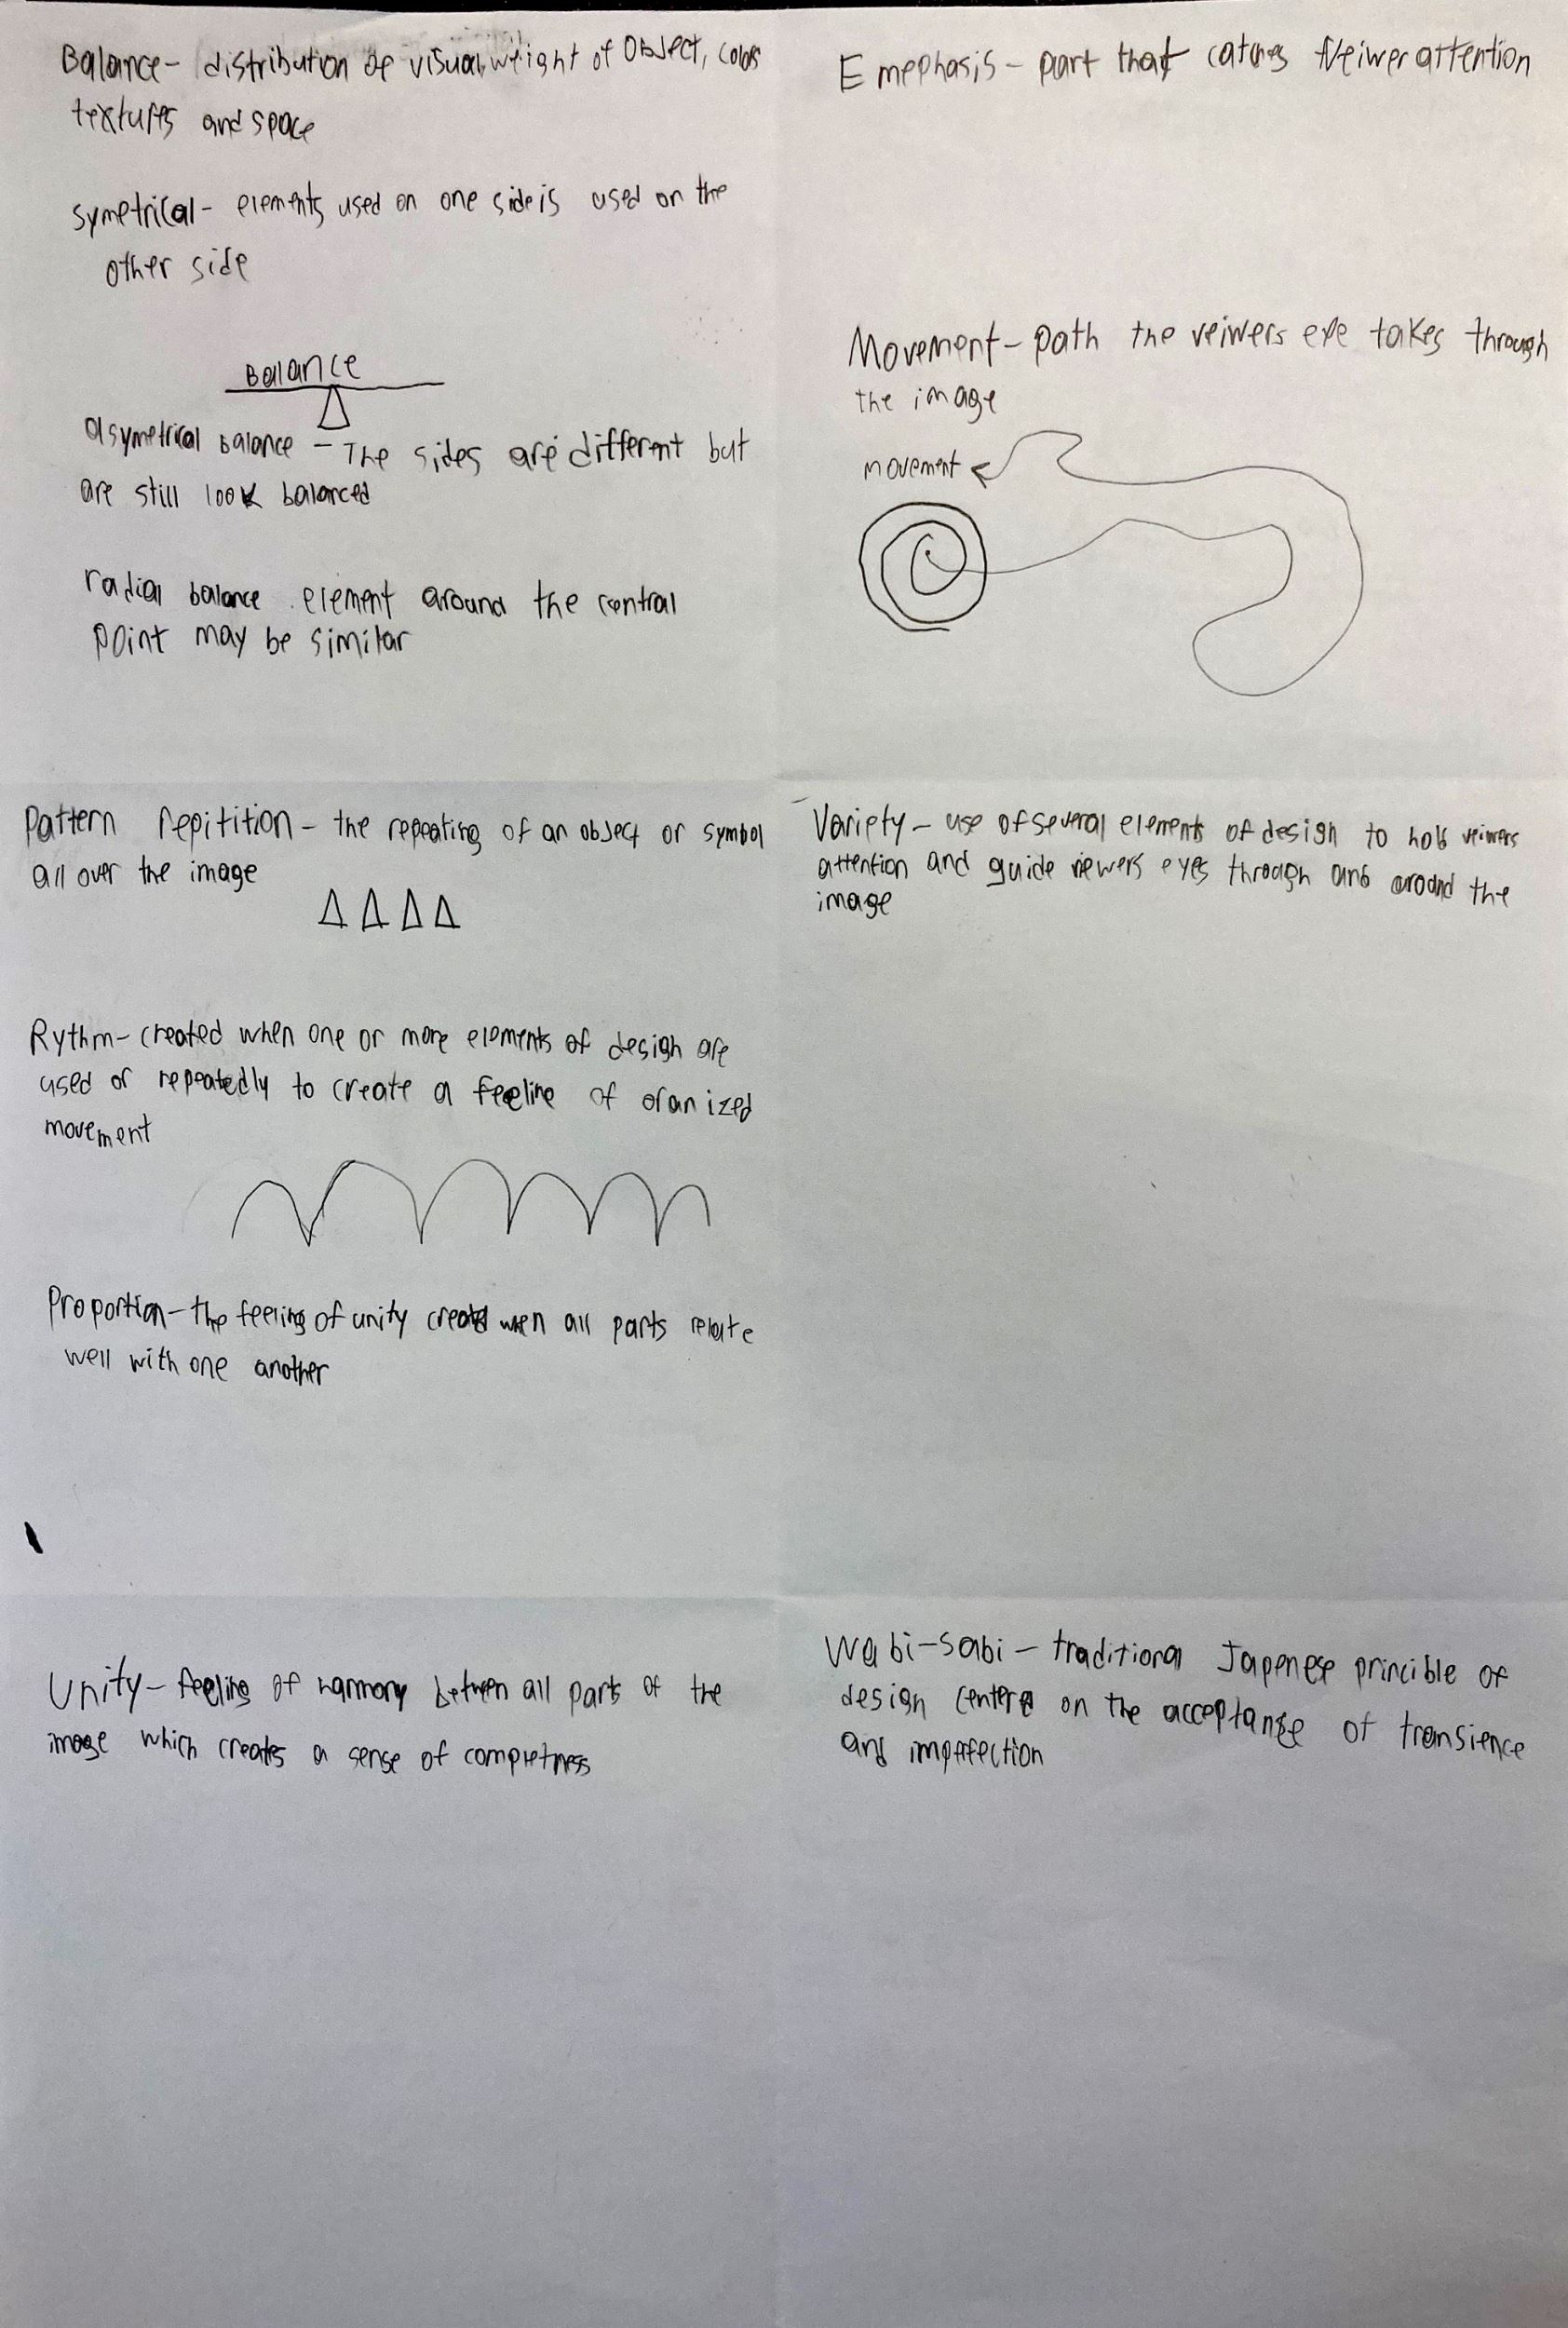 Balance- distribution of visual weight of Object, colors
textures and space
symetrical- elements used on one side is used on the
other side
Balance
asymetrical balance - The sides are different but
are still look balanced
radial balance element around the central
point may be similar
Emephasis - part that catches veiwer attention
Movement - path the veiwers eye takes through
the image
movement
Pattern repitition - the repeating of an object or symbol
all over the image
Rythm- created when one or more elements of design are
used or repeatedly to create a feeling of oranized
movement
Proportion - the feeling of unity created when all parts relate
well with one another
Variety - use of several elements of design to hold veiwers
attention and guide viewers eyes through and around the
image
Unity - feeling of harmony between all parts of the
image which creates a sense of completness
Wabi-sabi - traditional Japenese princible of
design centered on the acceptance of transience
and imperfection